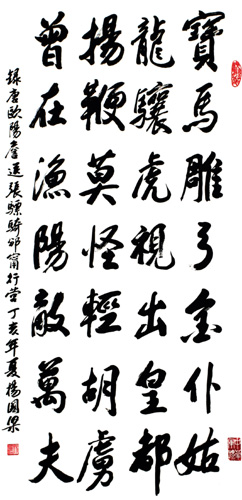 寶馬雕弓金仆姑
龍驤虎視出皇都
揚鞭莫怪輕胡虜
曾在漁陽敵萬夫
録唐歐陽詹送張驃騎邠甯行營丁亥年夏楊國梁